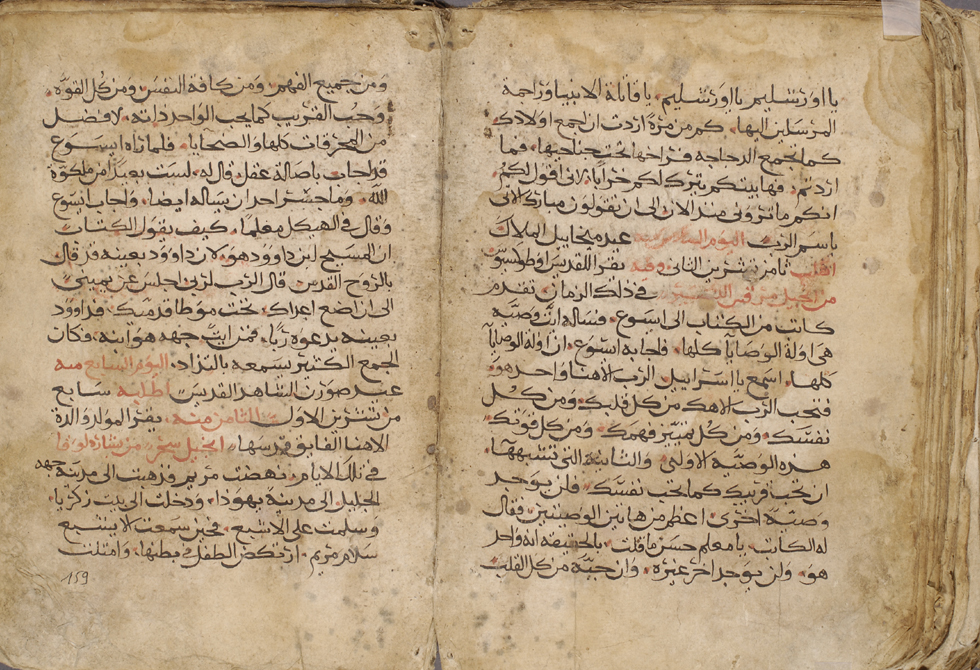 يا اورشليم يا اورشليم. يا قاتلة الانبيا وراجمة
المرسلين اليها. كم من مرة اردت ان اجمع اولادك
كما تجمع الدجاجه فراخها تحت جناحيها. فما
اردتم. فها بيتكم يترك لكم خرابا. لاني اقول لكم
انكم ما تروني منذ الان الى ان يقولون مبارك الاتي
باسم الرب. اليوم السادس منه عيد ميخاييل الملاك
ثامن تشرين الثاني. وفيه يقرا للقديس
من انجيل مرقس في ذلك الزمان. تقدم
كاتب من الكتاب الى اسوع. فساله اية وصية
هي اولة الوصايا كلها. فاجابه اسوع. ان اولة الوصايا
كلها. اسمع يا اسراييل. الرب الاهنا واحد هو.
فتحب الرب الاهك من كل قلبك. ومن كل
نفسك. ومن كل تمييز فهمك. ومن كل قوتك.
هذه الوصية الاولى. والثانية التي تشبهها.
ان تحب قريبك كما تحب نفسك. فلن يوجد
وصية اخرى اعظم من هاتين الوصيتين. فقال
له الكاتب. يا معلم حسن ما قلت. بالحقيقه انه واحد
هو. ولن يوجد اخر غيره. وان حبه من كل القلب
ومن جميع الفهم. ومن كافة النفس. ومن كل القوه.
وحب القريب كما يحب الواحد ذاته. لافضل
من المحرقات كلها والضحايا. فلما راه ايسوع
قد اجاب باصالة عقل. قال له. لست بعيدا من ملكوة
الله. وما جسر احد ان يساله ايضا. واجاب ايسوع
وقال في الهيكل معلما. كيف يقول الكتاب
ان المسيح ابن داوود هو. لان داوود بعينه قد قال
بالروح القدس. قال الرب لربي اجلس عن يميني.
الى ان اضع اعداك. تحت موطا قدميك. فداوود
بعينه يدعوه ربا. فمن اية جهه هو ابنه. فكان
الجمع الكثير يسمعه بالتذاذ. اليوم السابع منه
عيد الشاهد القديس سابع
من تشرين الاول. الثامن منه. يقرا المولد والدة
الاهنا الفايق قدسها. انجيل سحر. من بشارة لوقا
في تلك الايام. نهضت مريم فذهبت الى مدينة جهه
الجليل الى مدينة يهوذا. ودخلت الى بيت زكريا.
وسلمت على الاشبع. فحين سمعت الاشبع
سلام مريم. ارتكض الطفل في بطنها. وامتلت
159